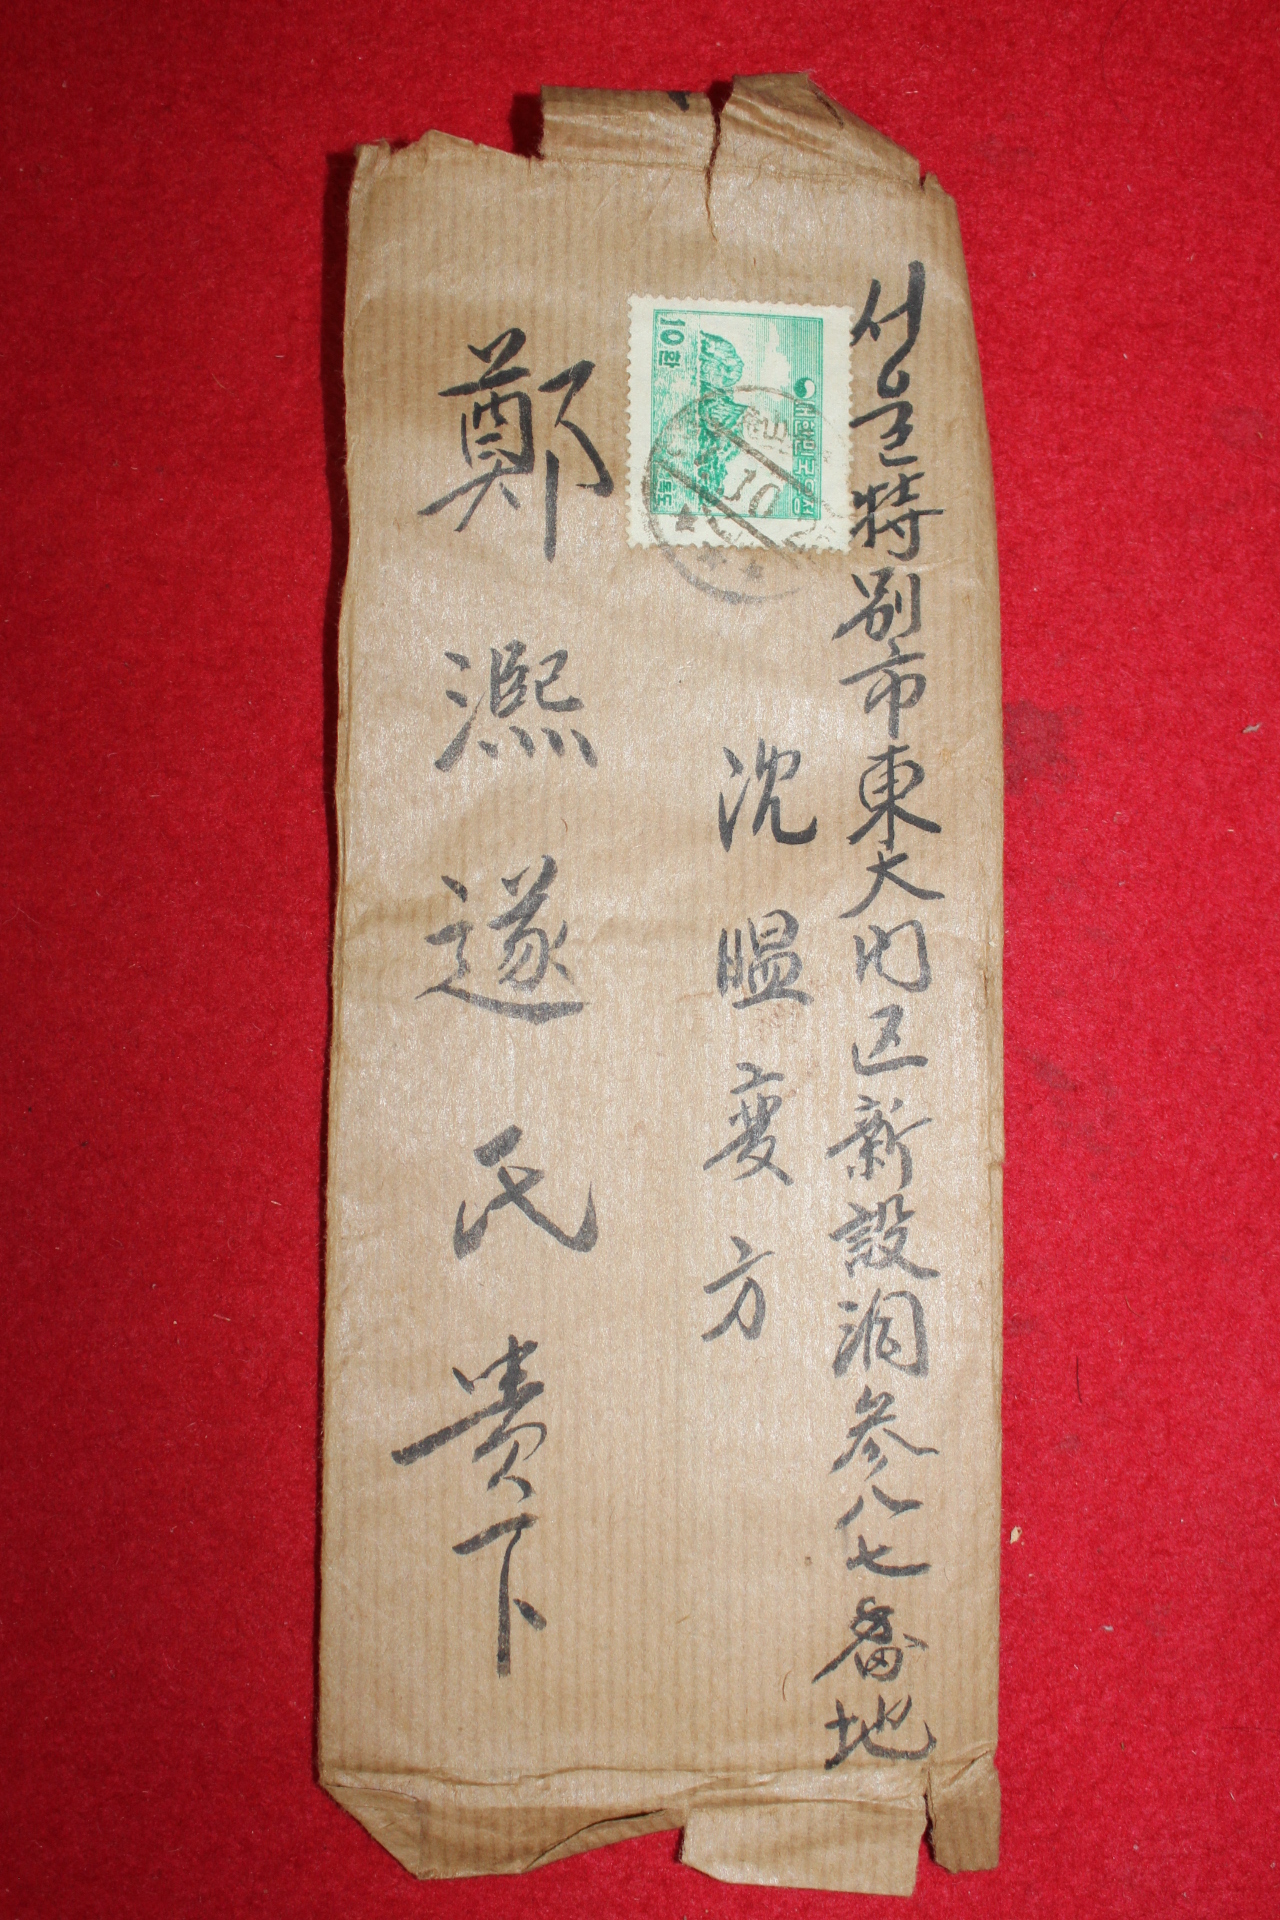 서울特別市東大门区新設洞参八七番地
沈㬈変方
鄭濕遂氏 貴下
대한민국우정
10환
10